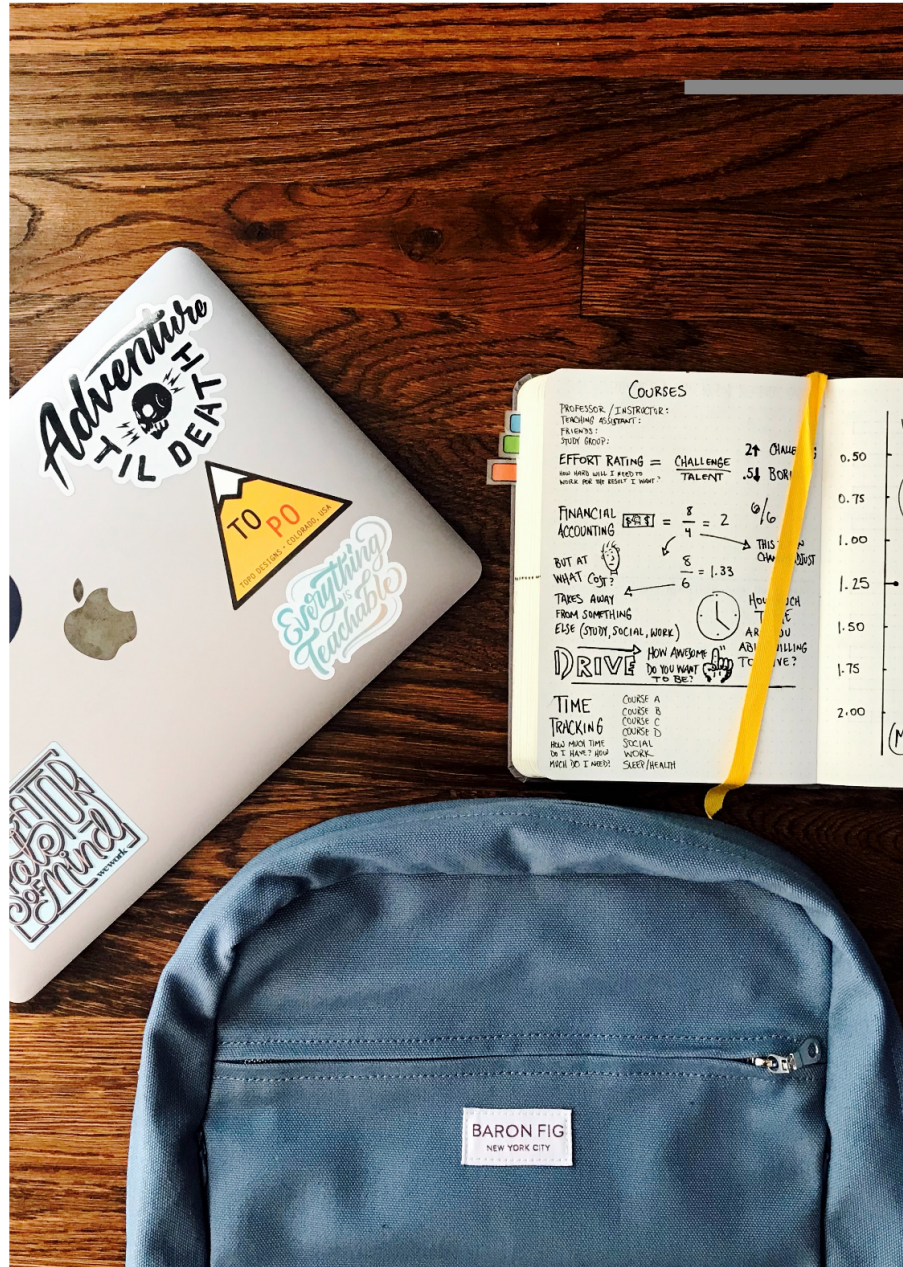 Adventure
TIL DEATH
TO PO
TOPO DESIGNS • COLORADO, USA
Everything
is
Teachable
OF
mind
wework
COURSES
PROFESSOR / INSTRUCTOR:
TEACHING ASSISTANT:
FRIENDS:
STUDY GROUP:
EFFORT RATING = CHALLENGE
TALENT
HOW HARD WILL I NEED TO
WORK FOR THE RESULT I WANT?
2↑
.5↓
FINANCIAL
ACCOUNTING = 8
4 = 2
6/6
BUT AT
WHAT COST?
8
6 = 1.33
TAKES AWAY
FROM SOMETHING
ELSE (STUDY, SOCIAL, WORK)
DRIVE
HOW AWESOME
DO YOU WANT
TO BE?
TIME
TRACKING
HOW MUCH TIME
DO I HAVE? HOW
MUCH DO I NEED?
COURSE A
COURSE B
COURSE C
COURSE D
SOCIAL
WORK
SLEEP/HEALTH
0.50
0.75
1.00
1.25
1.50
1.75
2.00
BARON FIG
NEW YORK CITY